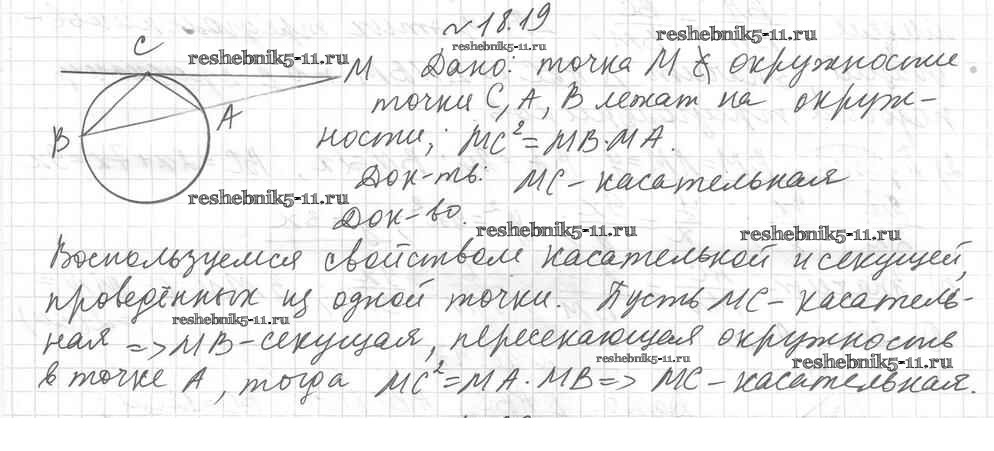 № 18.19
reshebnik5-11.ru
reshebnik5-11.ru
reshebnik5-11.ru
C
M
A
B
Дано: точка M ∉ окружности
точки C, A, B лежат на окруж-
ности; MC² = MB·MA.
Док-ть: MC - касательная
reshebnik5-11.ru
Док-во.
reshebnik5-11.ru
reshebnik5-11.ru
Воспользуемся свойством касательной и секущей,
проведённых из одной точки. Пусть MC - касатель-
reshebnik5-11.ru
ная => MB - секущая, пересекающая окружность
reshebnik5-11.ru
reshebnik5-11.ru
в точке A, тогда MC² = MA · MB => MC - касательная.